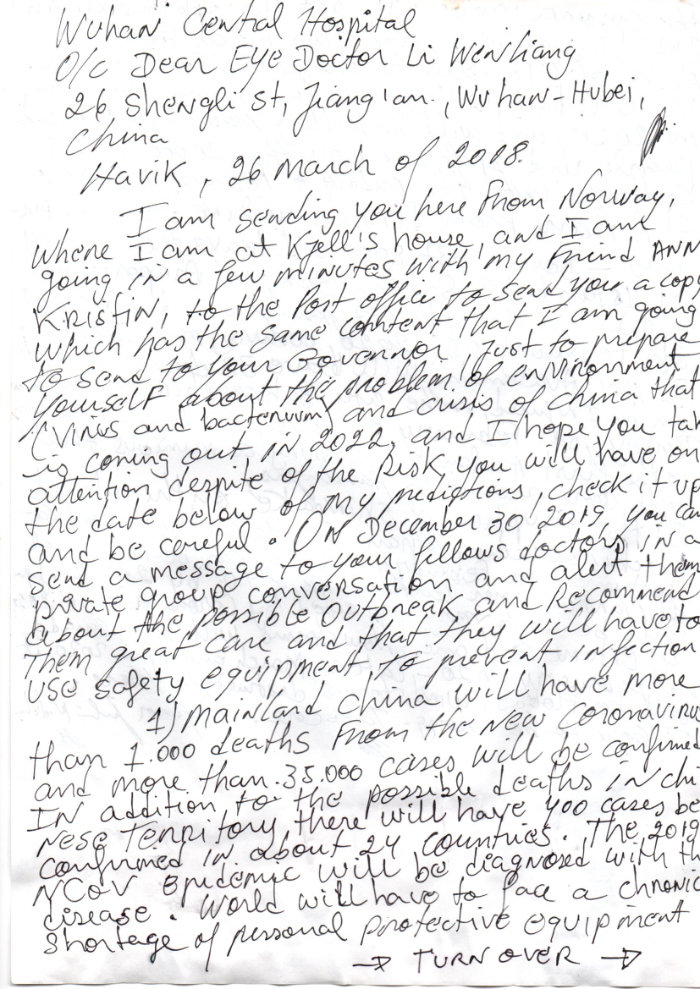 Wuhan Central Hospital
O/c Dear Eye Doctor Li Wenliang
26 Shengli St, Jiang'an., Wuhan-Hubei,
China
Havik, 26 March of 2018.
I am sending you here from Norway,
where I am at Kjell's house, and I am
going in a few minutes with my friend ANN
KRISTIN, to the Post office to send you a copy
which has the same content that I am going
to send to your Governor. Just to prepare
yourself about the problem of environment
(virus and bacterium) and crisis of China that
is coming out in 2022, and I hope you tak
attention despite of the Risk you will have on
the date below of my predictions, check it up
and be careful. On December 30 2019, you ca
send a message to your fellows doctors in a
private group conversation and alert them
about the possible Outbreak and Recommend
them great care and that they will have to
use safety equipment to prevent infection
1) Mainland China will have more
than 1.000 deaths from the new coronaviru
and more than 35.000 cases will be confirmed
In addition, to the possible deaths in chi
nese Territory, there will have 400 cases be
confirmed in about 24 countries. The 2019
NCoV Epidemic will be diagnosed with th
disease. World will have to face a chronic
shortage of personal protective equipment
→ TURN OVER →